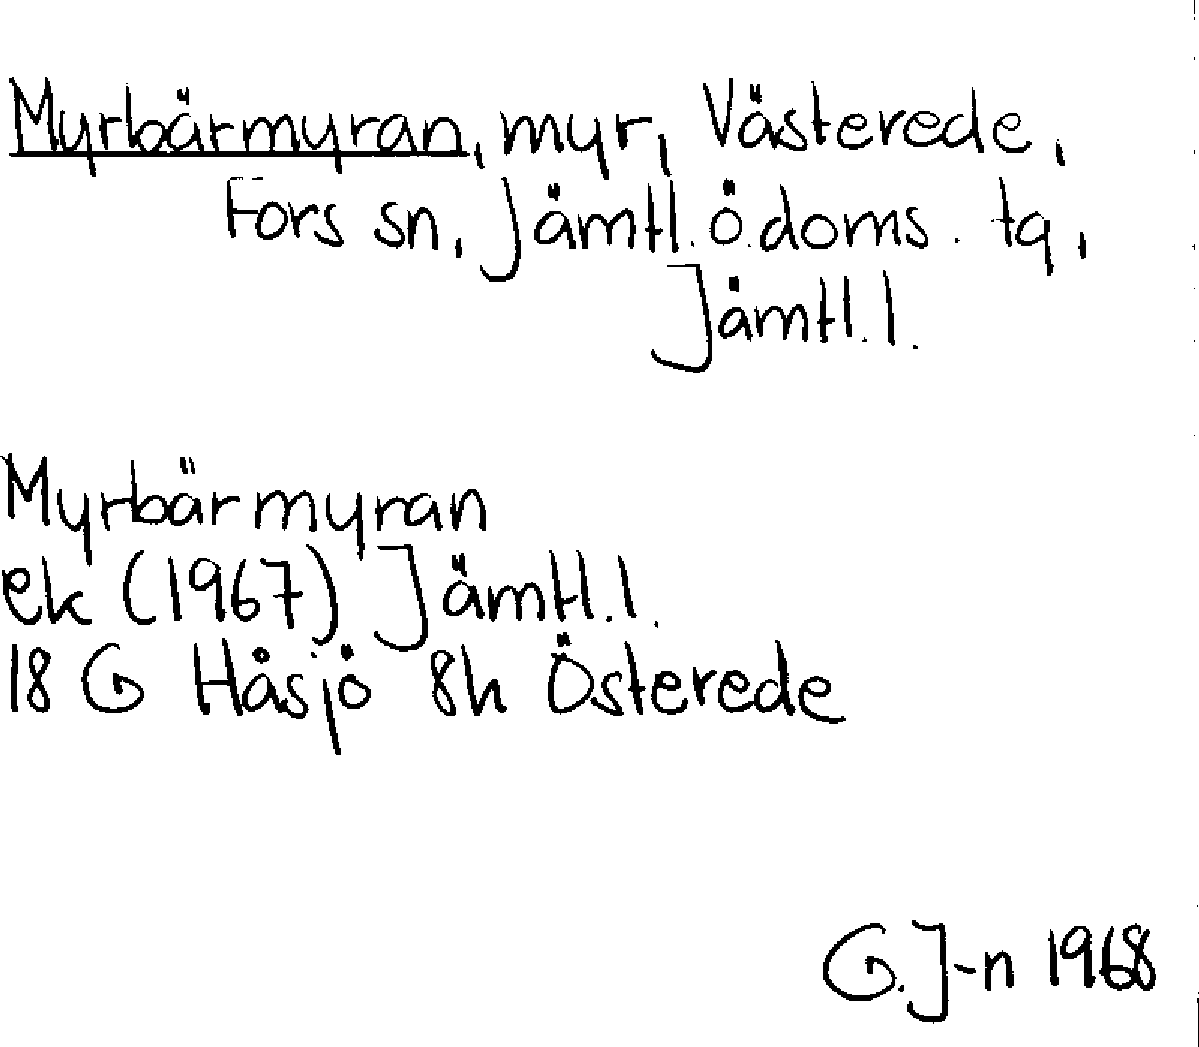 Myrbärmyran, myr, Västerede,
Fors sn, Jämtl. ö. doms. tg,
Jämtl. l.
Myrbärmyran
ek (1967) Jämtl. l.
18 G Håsjö 8h Österede
G. J-n 1968